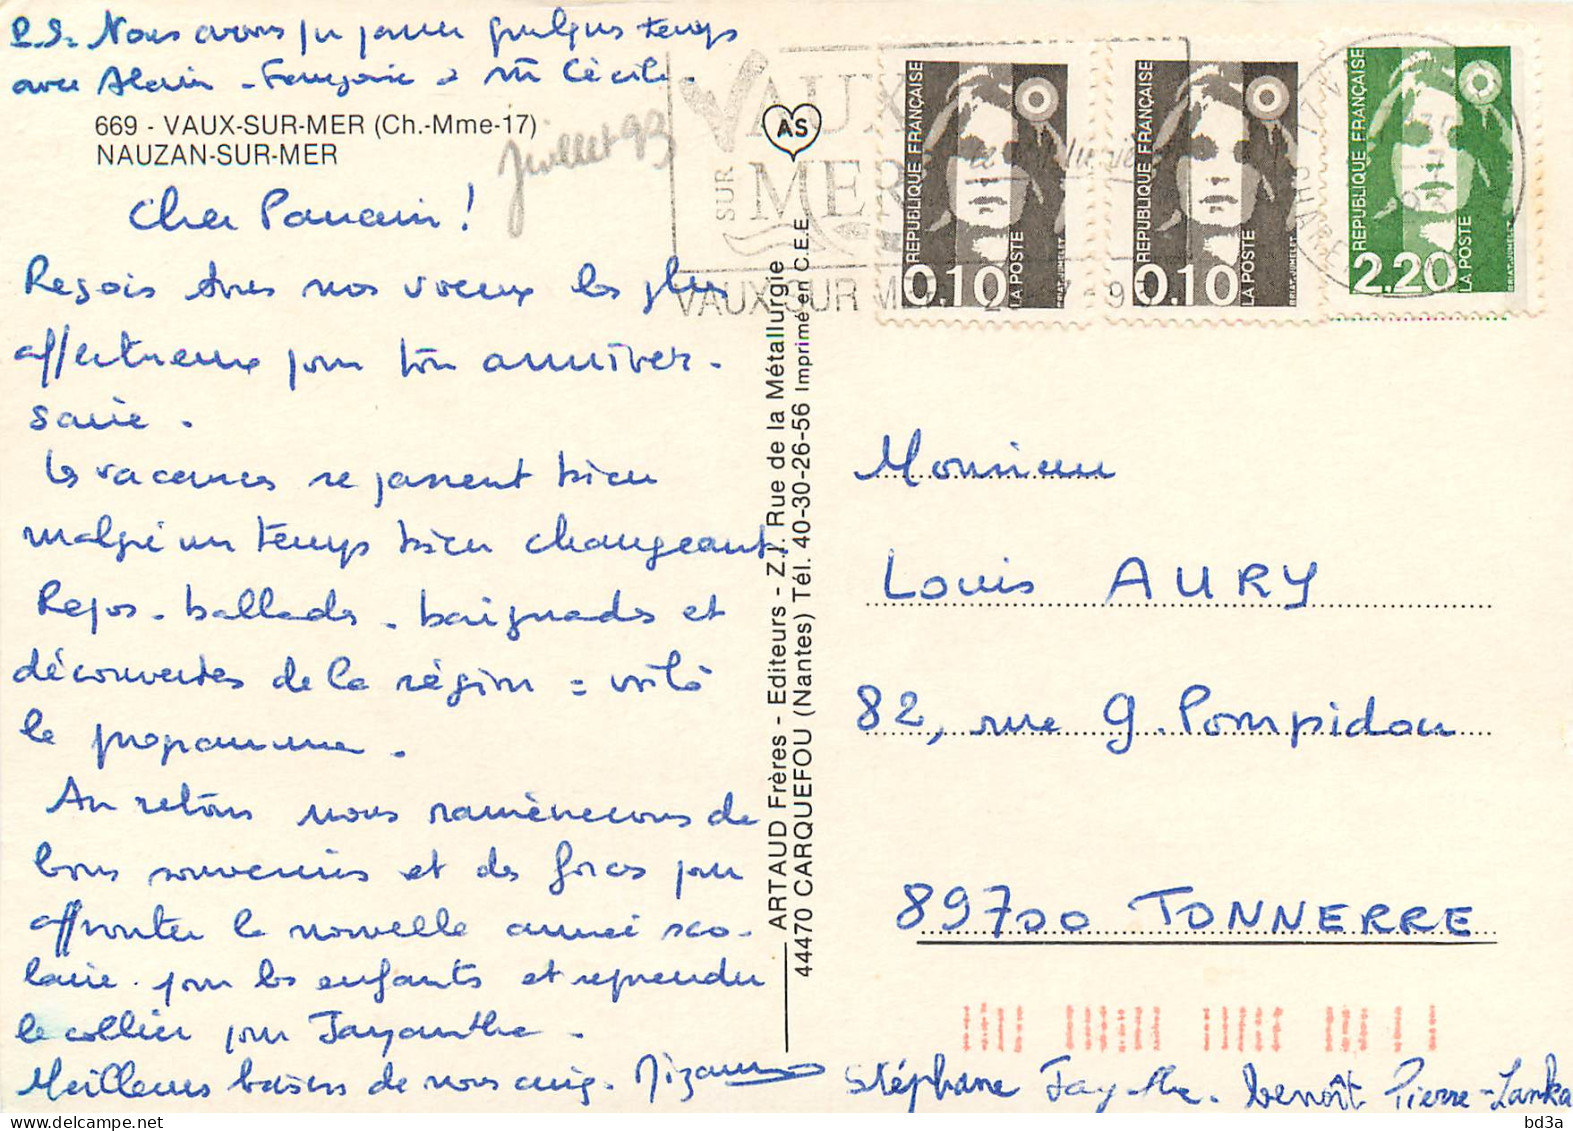 P.S. Nous avons pu passer quelques temps
avec Alain - Françoise et Cécile.
669 - VAUX-SUR-MER (Ch.-Mme-17)
NAUZAN-SUR-MER
juillet 93
Cher Parrain !
Reçois tous nos voeux les plus
affectueux pour ton anniver-
saire.
Les vacances se passent bien
malgré un temps bien changeant.
Repos - ballades - baignades et
découvertes de la région = voilà
le programme.
Au retour nous ramènerons de
bons souvenirs et des forces pour
affronter la nouvelle année sco-
laire pour les enfants et reprendre
le collier pour Jayantha.
Meilleurs baisers de nous cinq.
Stéphane Benoît Pierre-Lanka
AS
ARTAUD Frères - Editeurs - Z.I. Rue de la Métallurgie
44470 CARQUEFOU (Nantes) Tél. 40-30-26-56 Imprimé en C.E.E.
VAUX
SUR
MER
VAUX SUR MER
REPUBLIQUE FRANÇAISE
0.10
LA POSTE
BRIAT-JUMELET
REPUBLIQUE FRANÇAISE
0.10
LA POSTE
BRIAT-JUMELET
REPUBLIQUE FRANÇAISE
2.20
LA POSTE
BRIAT-JUMELET
Monsieur
Louis AURY
82, rue G. Pompidou
89700 TONNERRE
bd3a